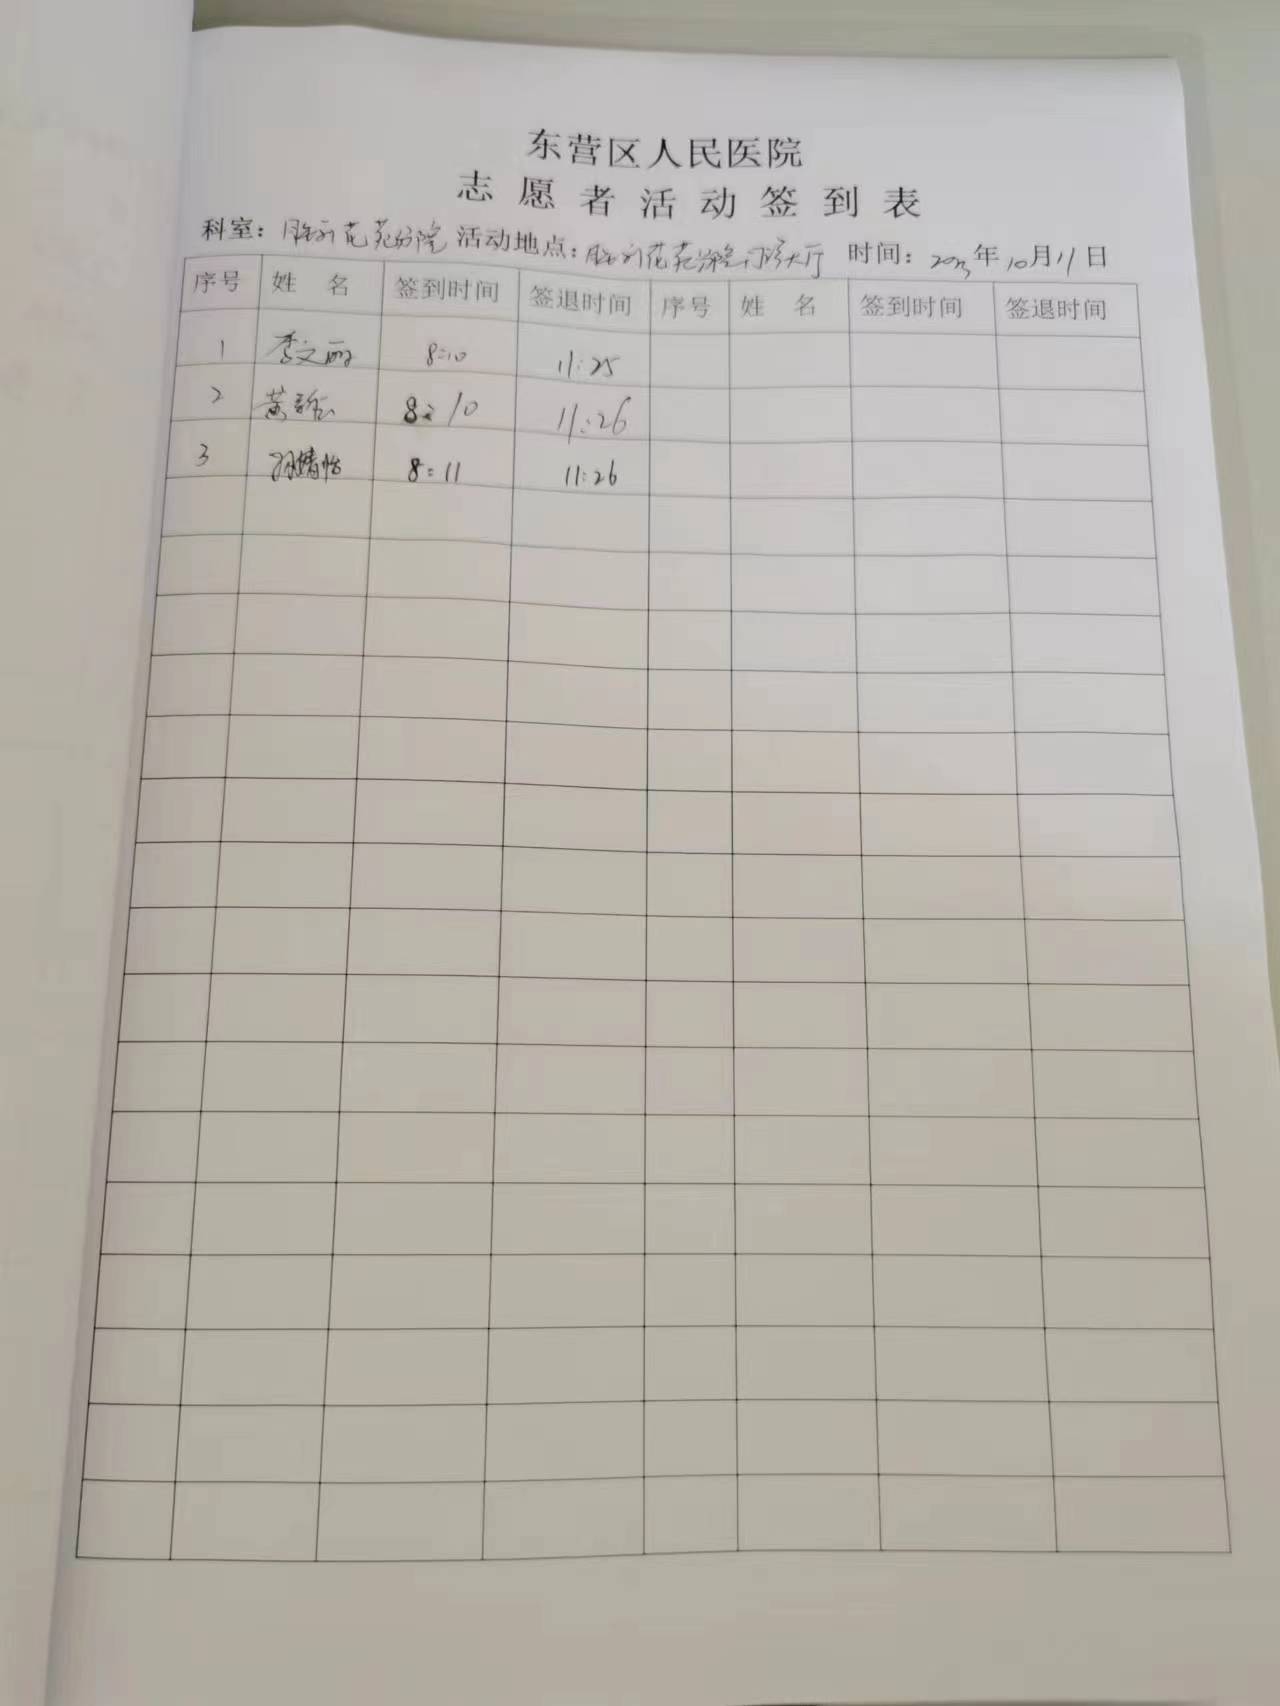 东营区人民医院
志愿者活动签到表
科室：胜利花苑分院 活动地点：胜利花苑分院门诊大厅 时间：2023年10月11日
序号 姓 名 签到时间 签退时间 序号 姓 名 签到时间 签退时间
1 李文丽 8:10 11:25
2 黄 8:10 11:26
3 孙婧怡 8:11 11:26